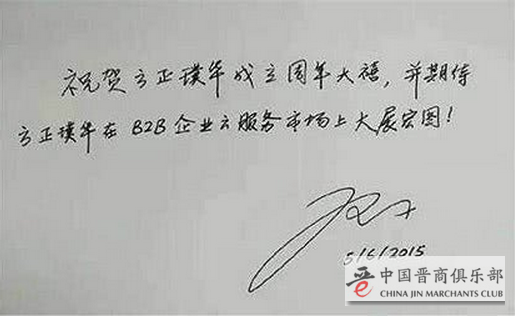 祝贺方正璞华成立周年大禧，并期待
方正璞华在B2B企业云服务市场上大展宏图！
5/6/2015
中国晋商俱乐部
CHINA JIN MERCHANTS CLUB